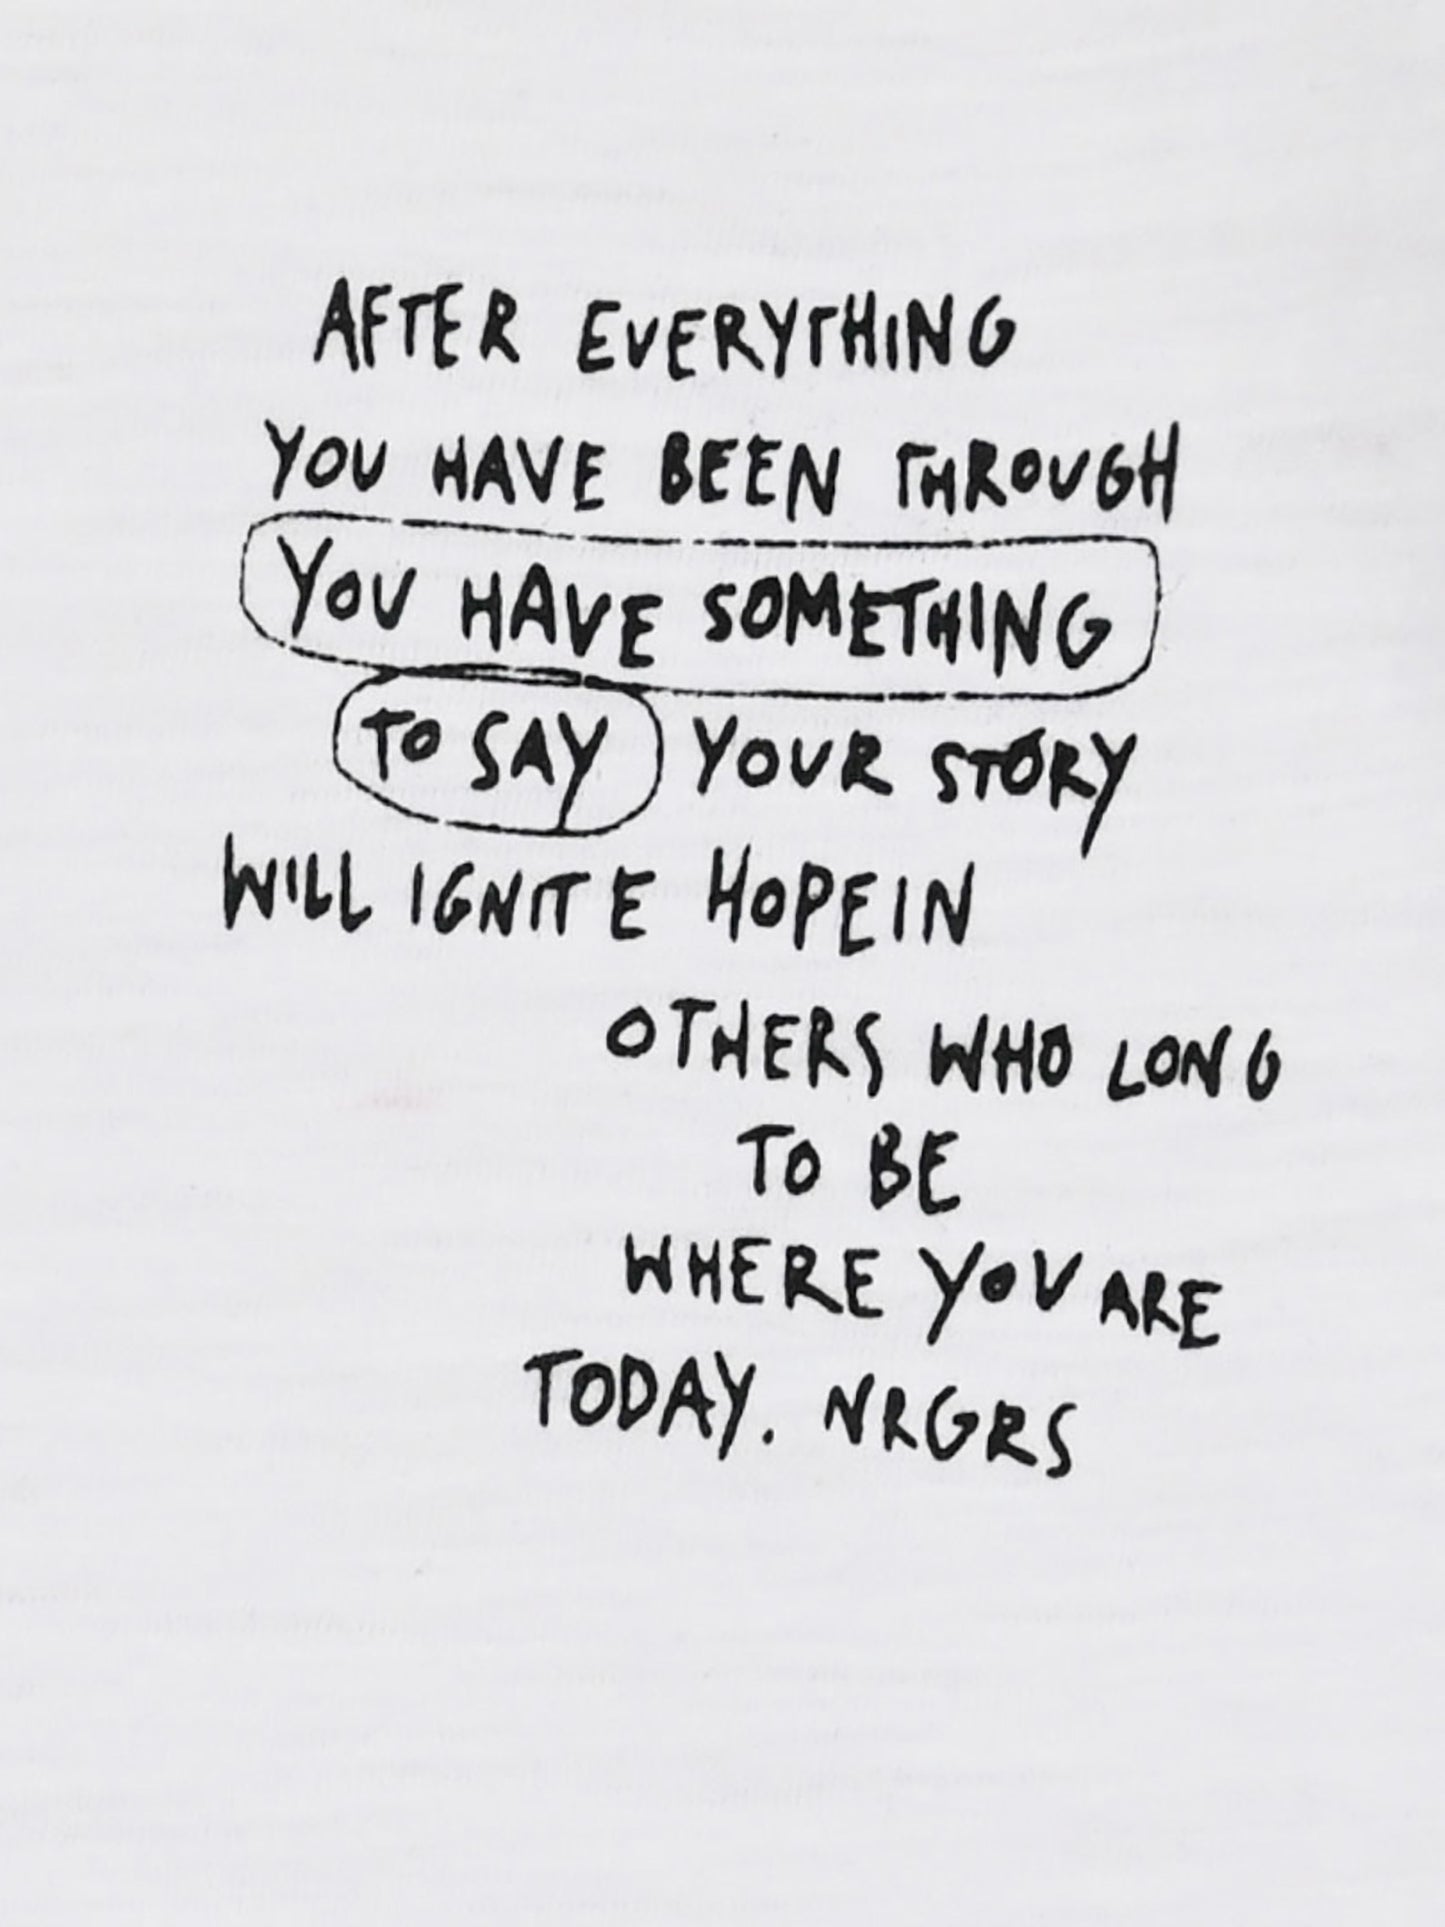 AFTER EVERYTHING
YOU HAVE BEEN THROUGH
YOU HAVE SOMETHING
TO SAY YOUR STORY
WILL IGNITE HOPE IN
OTHERS WHO LONG
TO BE
WHERE YOU ARE
TODAY. NRGRS